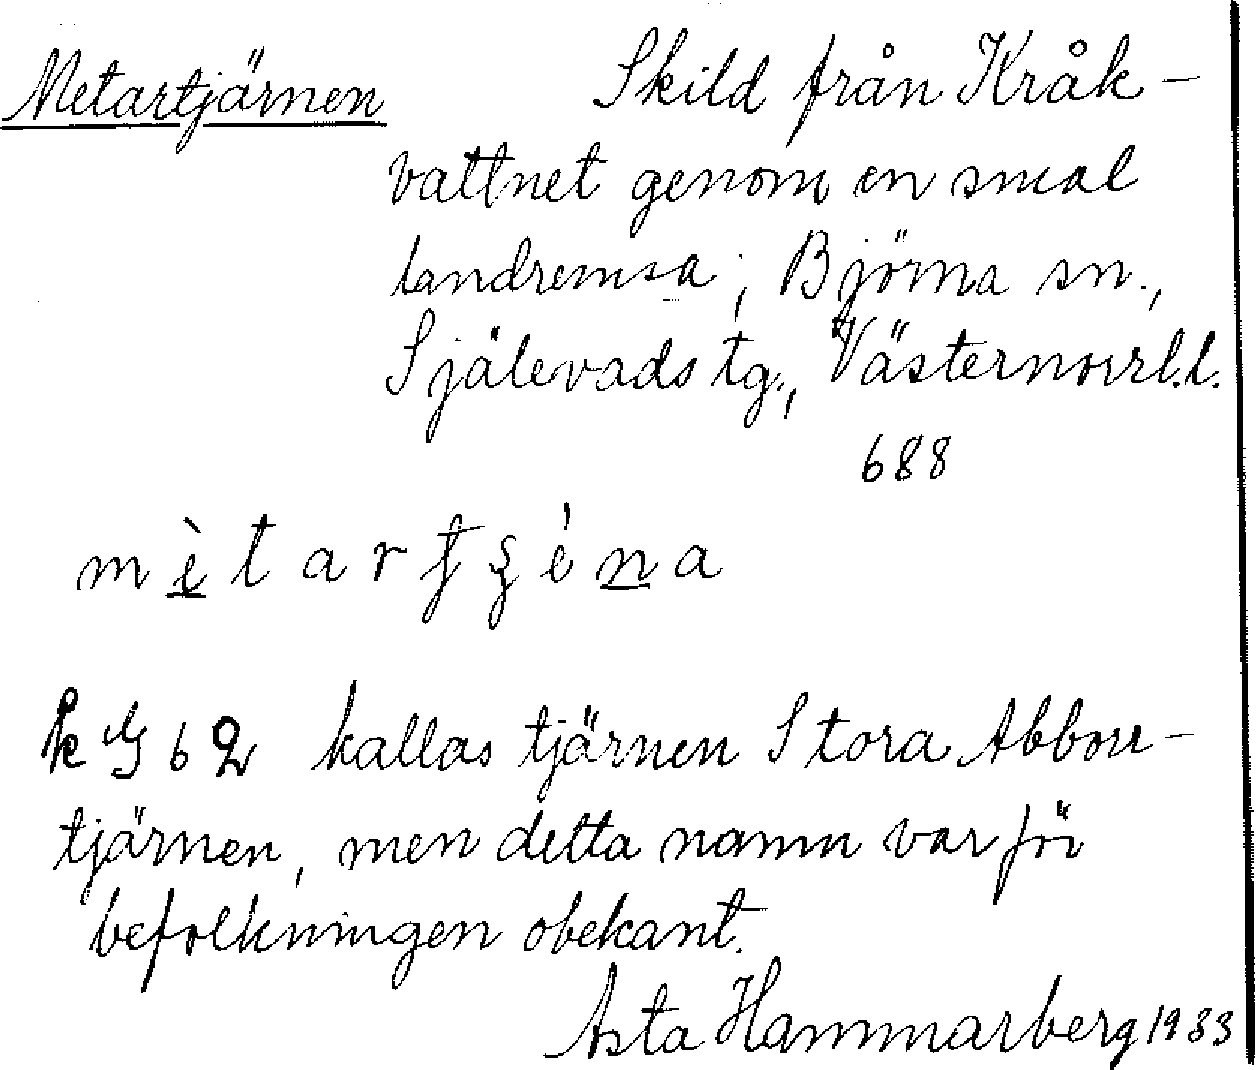 Metartjärnen Skild från Kråk-
vattnet genom en smal
landremsa; Björna sn.,
Själevads tg., Västernorrl.l.
688
mètartʃéna
kallas tjärnen Stora Abborr-
tjärnen, men detta namn var för
befolkningen obekant.
Asta Hammarberg 1933